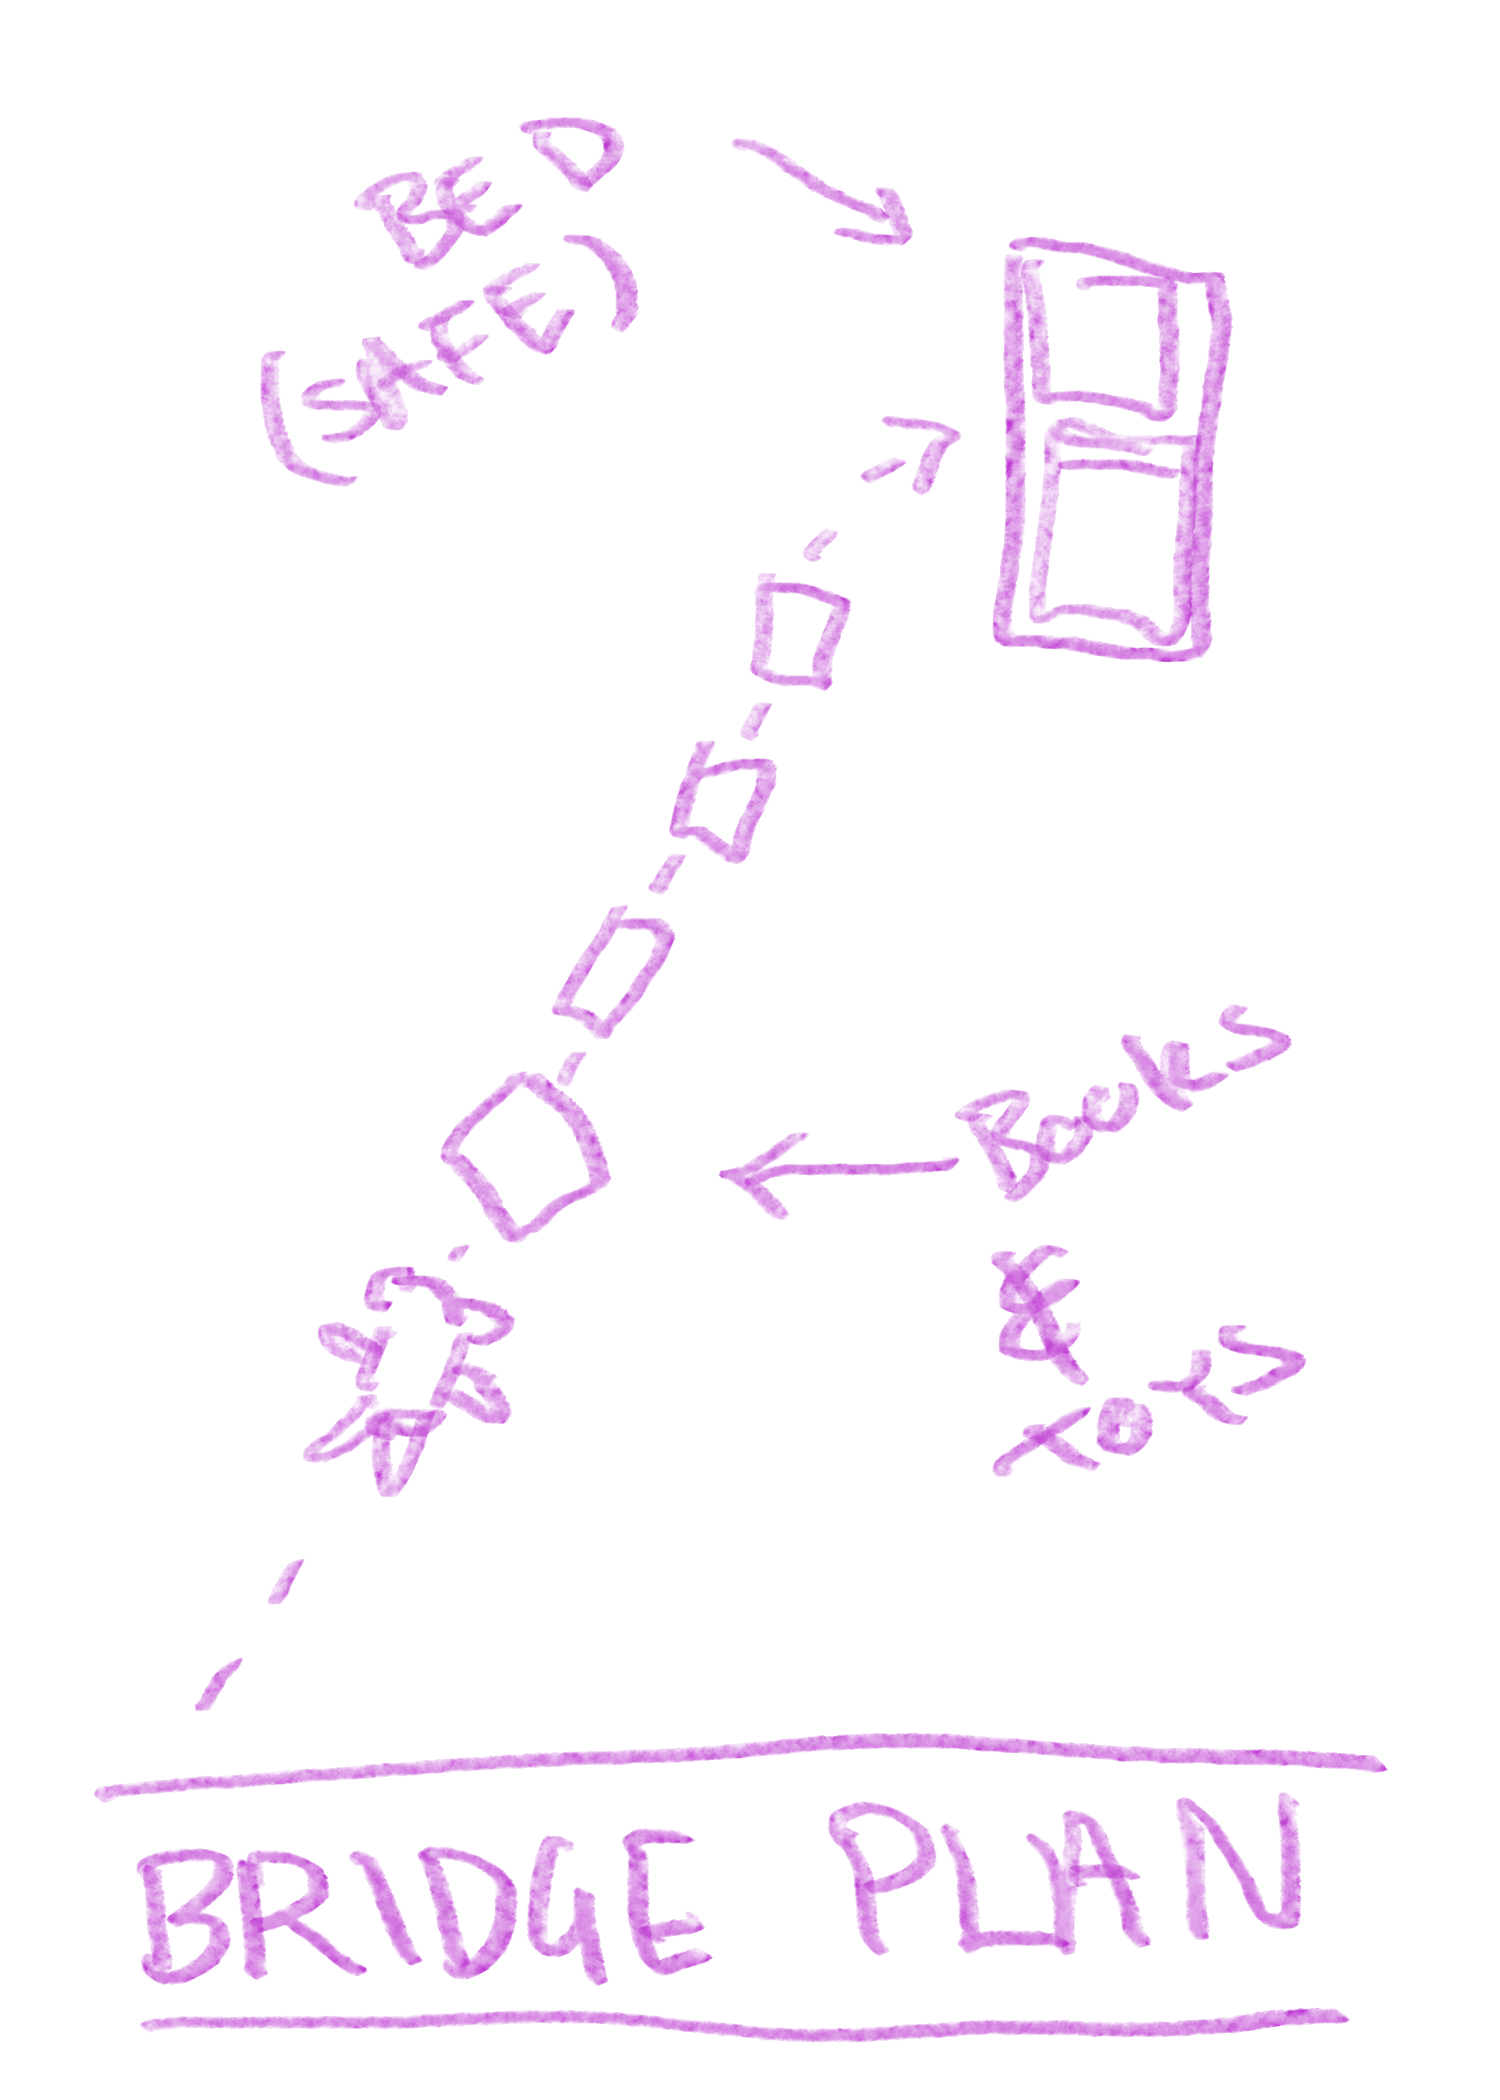 BED
(SAFE)
Books
&
TOYS
BRIDGE PLAN